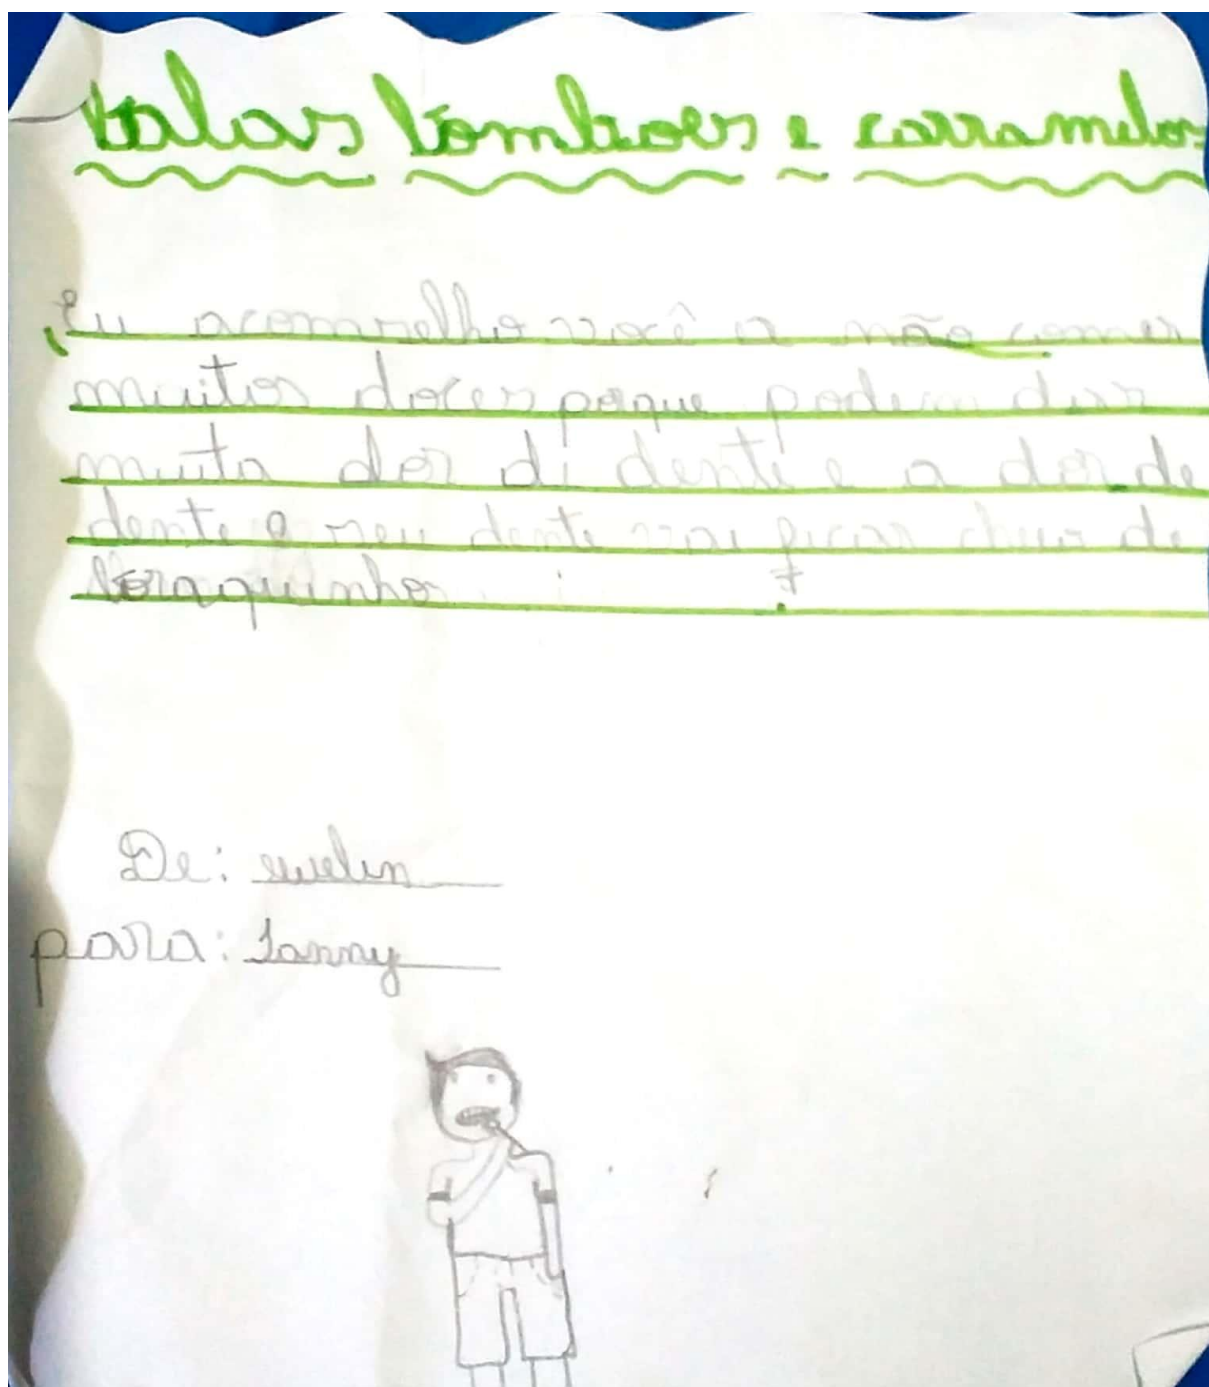 balas bomboes e carramelos
Eu aconselho você a não comer
muitos doces poque podem dar
muita dor di dente e a dor de
dente e seu dente vai ficar cheio de
boraquinhos
De: evelin
para: Ianny